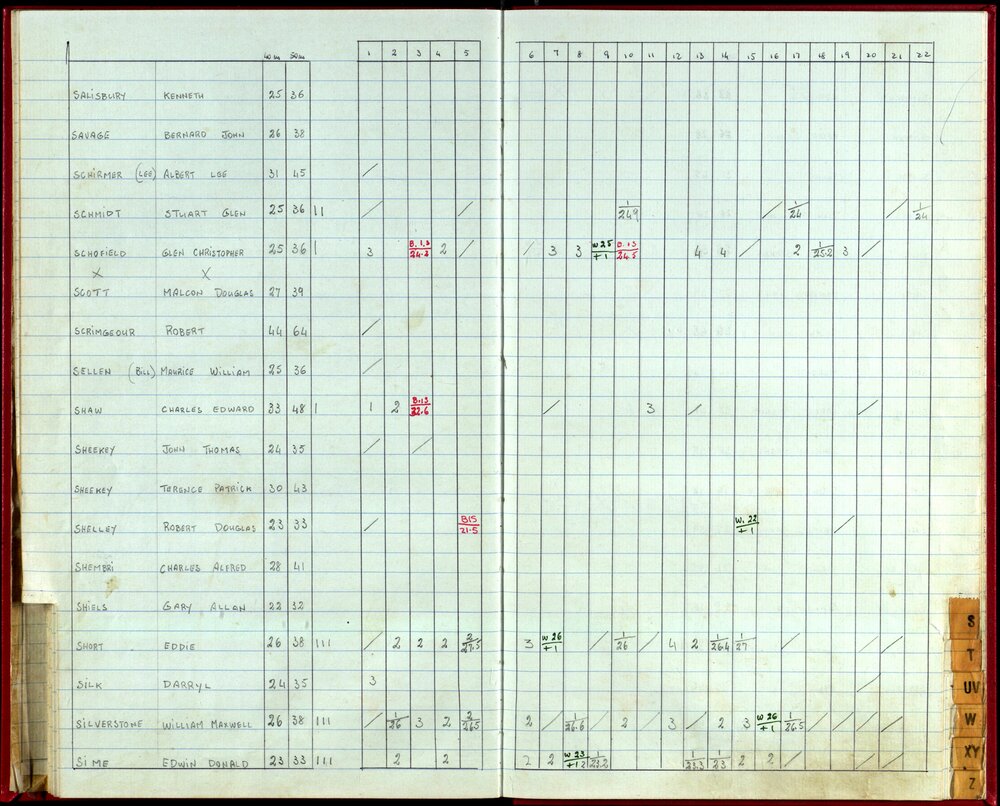 40m 50m 1 2 3 4 5 6 7 8 9 10 11 12 13 14 15 16 17 18 19 20 21 22
SALISBURY KENNETH 25 36
SAVAGE BERNARD JOHN 26 38
SCHIRMER (LEE) ALBERT LEE 31 45 /
SCHMIDT STUART GLEN 25 36 II / / 1/249 / 1/24 / 1/24
SCHOFIELD GLEN CHRISTOPHER 25 36 I 3 B.1.3/24.2 2 / / 3 3 W25/+1 B.13/24.5 4 4 / 2 1/25.2 3 /
X X
SCOTT MALCON DOUGLAS 27 39
SCRIMGEOUR ROBERT 44 64 /
SELLEN (BILL) MAURICE WILLIAM 25 36 /
SHAW CHARLES EDWARD 33 48 I 1 2 B.13/32.6 / 3 / /
SHEEKEY JOHN THOMAS 24 35 / /
SHEEKEY TERENCE PATRICK 30 43
SHELLEY ROBERT DOUGLAS 23 33 / B15/21.5 W.22/+1 /
SHEMBRI CHARLES ALFRED 28 41
SHIELS GARY ALLAN 22 32
SHORT EDDIE 26 38 III / 2 2 2 2/27.5 3 W26/+1 / 1/26 / 4 2 1/26.4 1/27 / / /
SILK DARRYL 24 35 3 /
SILVERSTONE WILLIAM MAXWELL 26 38 III / 1/26 3 2 2/26.5 2 / 1/26.6 / 2 / 3 / 2 3 W26/+1 1/26.5 / / / /
SIME EDWIN DONALD 23 33 III 2 2 2 2 W23/+1 2 1/23.2 1/23.3 1/23 2 2 / / /
S
T
UV
W
XY
Z